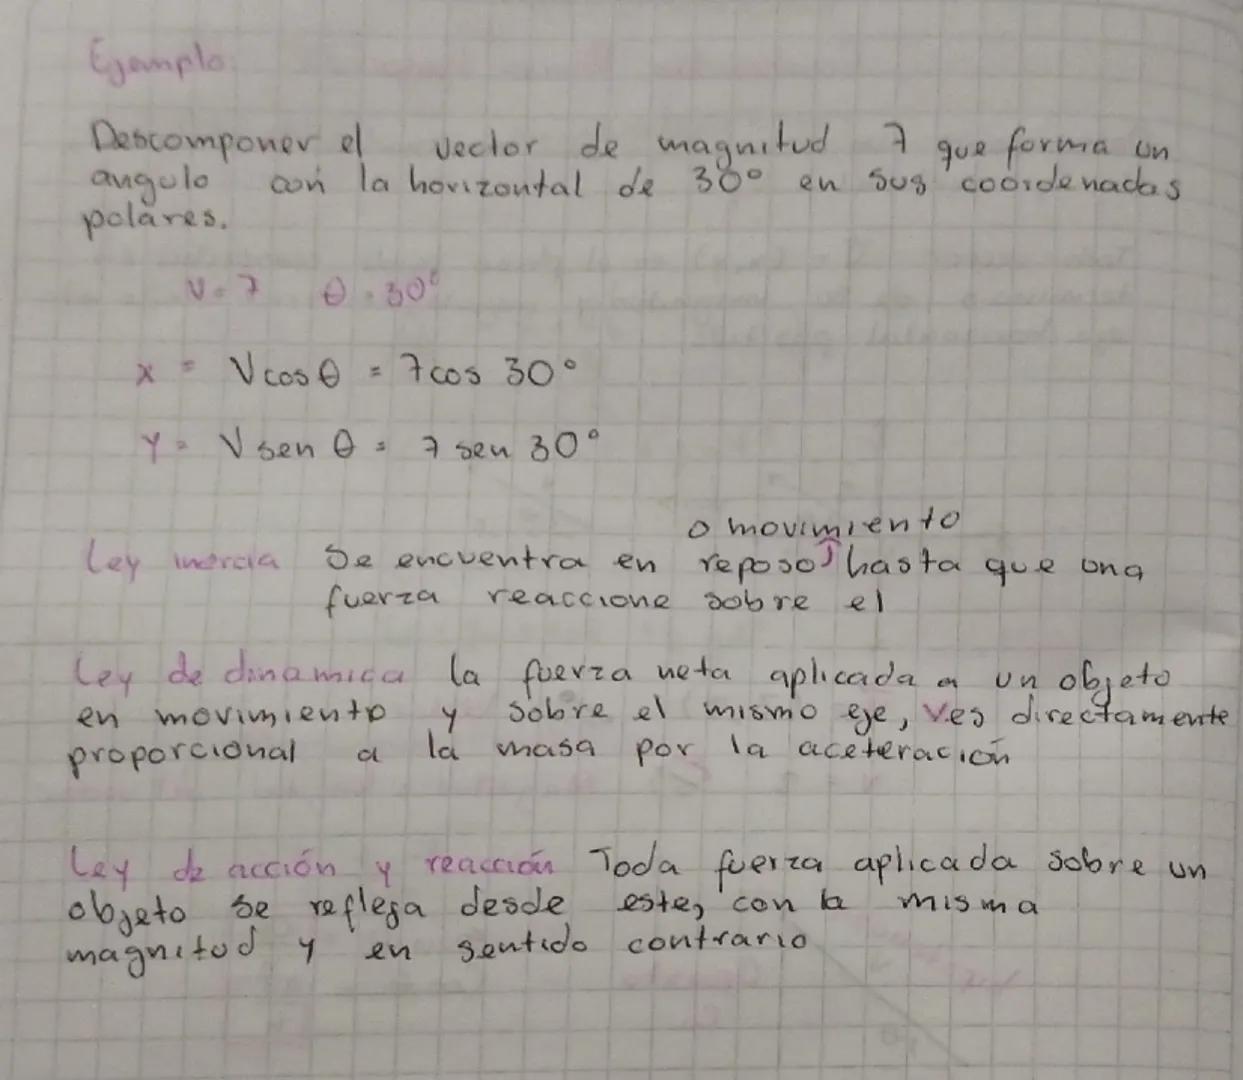 Ejemplo:
Descomponer el vector de magnitud 7 que forma un
angulo con la horizontal de 30° en sus coordenadas
polares.
V=7 θ=30°
x = V cos θ = 7 cos 30°
Y = V sen θ = 7 sen 30°
o movimiento
Ley inercia Se encuentra en reposo hasta que una
fuerza reaccione sobre el
Ley de dinamica la fuerza neta aplicada a un objeto
en movimiento y sobre el mismo eje, es directamente
proporcional a la masa por la aceleración
Ley de acción y reacción Toda fuerza aplicada sobre un
objeto se refleja desde este, con la misma
magnitud y en sentido contrario